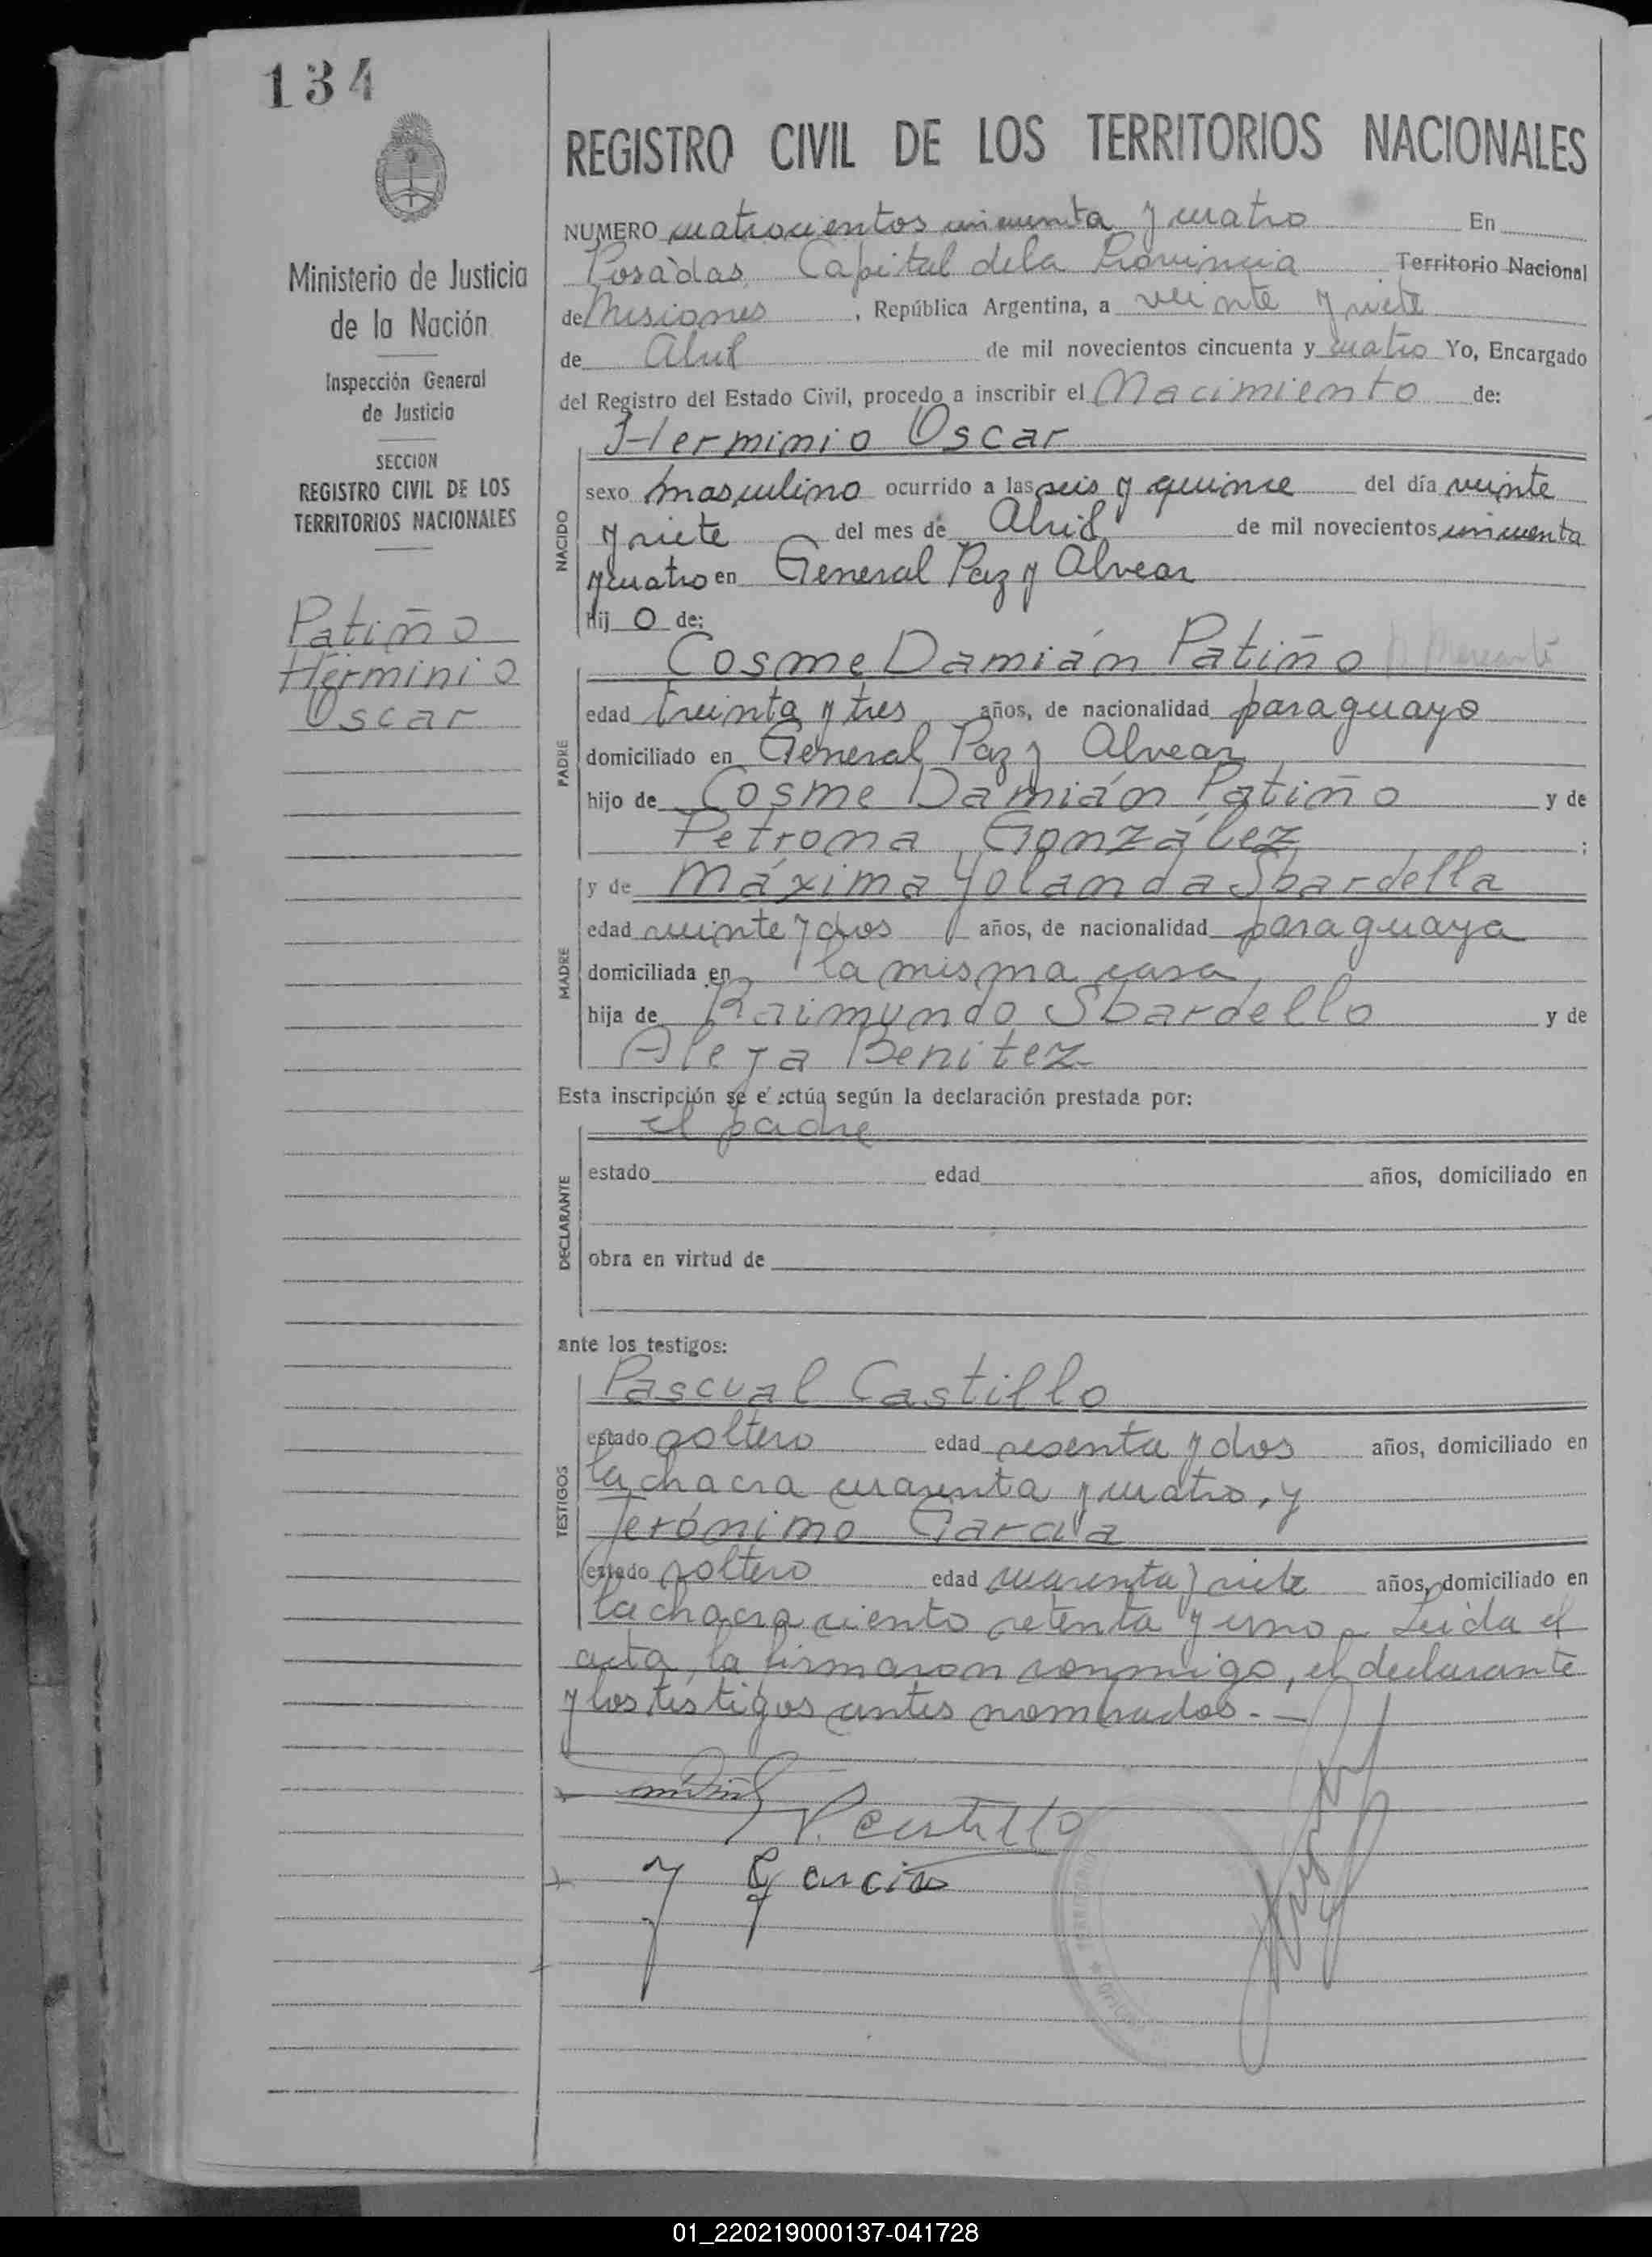 134
REGISTRO CIVIL DE LOS TERRITORIOS NACIONALES
Ministerio de Justicia
de la Nación
Inspección General
de Justicia
SECCION
REGISTRO CIVIL DE LOS
TERRITORIOS NACIONALES
Patiño
Herminio
Oscar
NUMERO cuatrocientos cincuenta y cuatro En
Posadas Capital de la Provincia Territorio Nacional
de Misiones, República Argentina, a veinte y siete
de Abril de mil novecientos cincuenta y cuatro Yo, Encargado
del Registro del Estado Civil, procedo a inscribir el Nacimiento de:
Herminio Oscar
NACIDO
sexo masculino ocurrido a las seis y quince del día veinte
y siete del mes de Abril de mil novecientos cincuenta
y cuatro en General Paz y Alvear
hij o de:
Cosme Damián Patiño
PADRE
edad treinta y tres años, de nacionalidad paraguayo
domiciliado en General Paz y Alvear
hijo de Cosme Damián Patiño y de
Petrona González ;
y de Máxima Yolanda Sbardella
MADRE
edad veinte y dos años, de nacionalidad paraguaya
domiciliada en la misma casa
hija de Raimundo Sbardello y de
Aleja Benitez
Esta inscripción se efectúa según la declaración prestada por:
el padre
DECLARANTE
estado edad años, domiciliado en
obra en virtud de
ante los testigos:
Pascual Castillo
TESTIGOS
estado soltero edad sesenta y dos años, domiciliado en
la chacra cuarenta y cuatro, y
Jerónimo Garcia
estado soltero edad cuarenta y siete años, domiciliado en
la chacra ciento setenta y uno - Leída el
acta, la firmaron conmigo, el declarante
y los testigos antes nombrados. -
P. Castillo
J Garcia
01_220219000137-041728